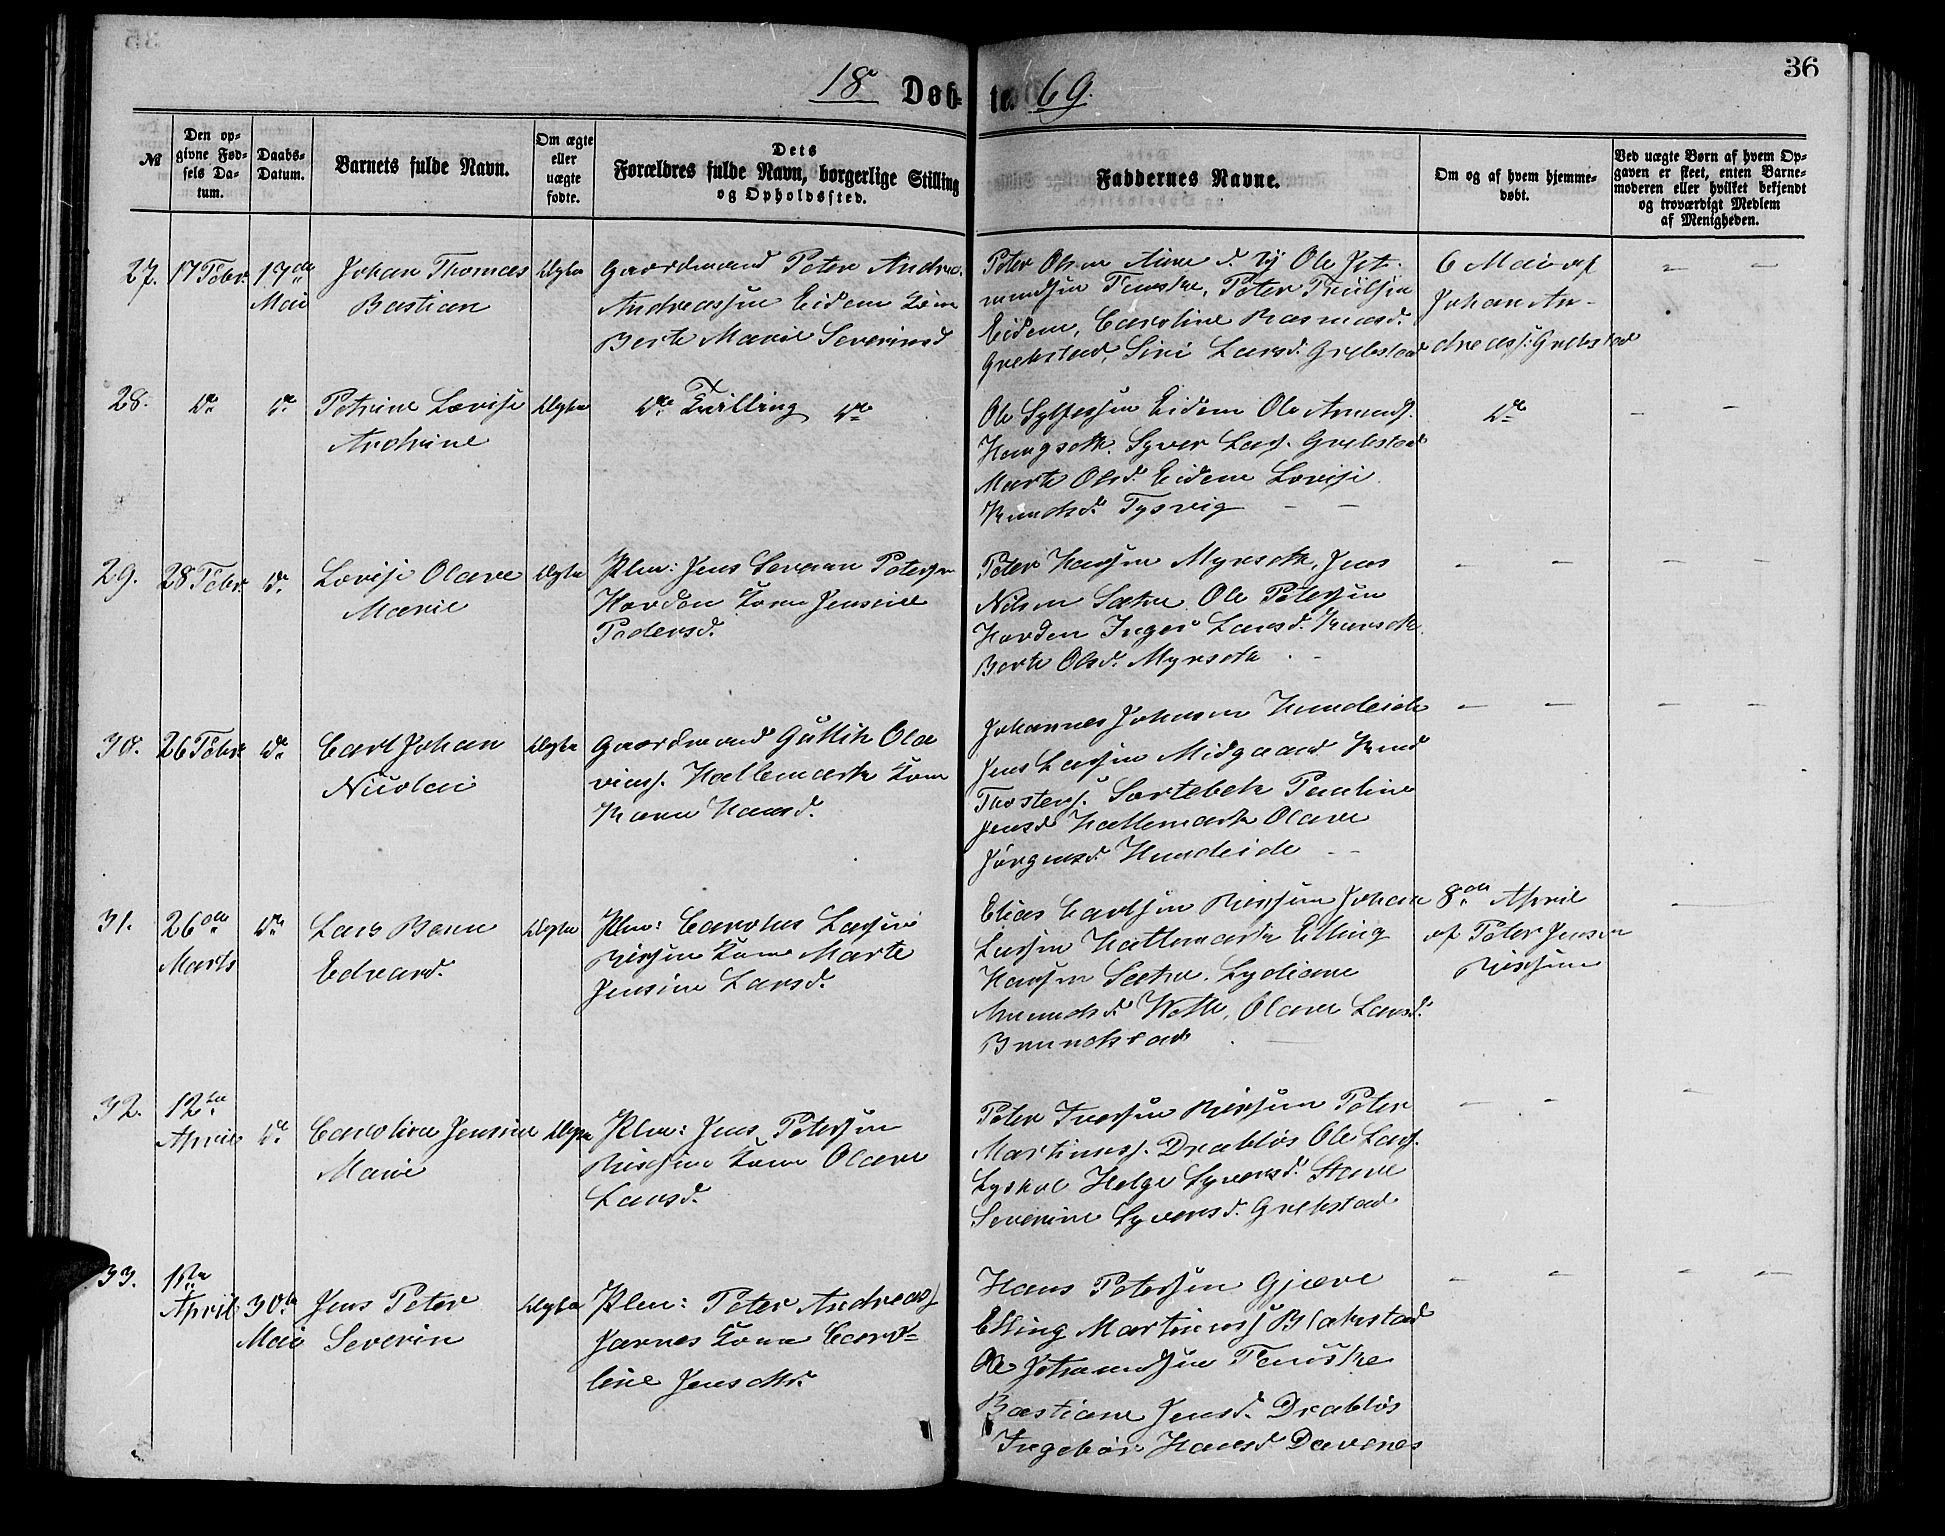 36
18 Døb- te. 69.
№
Den op-
givne Fød-
sels Da-
tum.
Daabs-
Datum.
Barnets fulde Navn.
Om ægte
eller
uægte
fødte.
Dets
Forældres fulde Navn, borgerlige Stilling
og Opholdssted.
Faddernes Navne.
Om og af hvem hjemme-
døbt.
Ved uægte Børn af hvem Op-
gaven er skeet, enten Barne-
moderen eller hvilket bekjendt
og troværdigt Medlem
af Menigheden.
27.
17 Febr.
17de
Mai
Johan Thomas
Bastian
Ægte
Gaardmand Peter Andrea-
Andreassen Eidem Kone
Berte Marie Severinsd
Peter Olsen Ole
Fauske, Peter
Eidem, Caroline Rasmusd.
Grebstad, Siri Larsd. Grebstad
6 Mai af
Johan An-
dreas: Grebstad
28.
Do
Do
Petrine Lovise
Andrine
Ægte
Do Tvilling Do
Ole Eidem Ole Amunds.
Syver Las. Grebstad
Marte Olsd. Eidem Lovise
Knudsd. Tysvig
Do
29.
28 Febr.
Do
Lovise Olave
Marie
Ægte
Plm: Jens Petersen
Hovden Kone Jensine
Pedersd.
Peter Hansen Myrseth, Jens
Nilsen Sætre Ole Petersen
Hovden Inger Larsd.
Berte Olsd. Myrseth
30.
26 Febr
Do
Carl Johan
Nicolai
Ægte
Gaardmand Guttik Ola
vius. Hallemark Kone
Karen Hansd.
Johannes Johansen Hundeide
Jens Larsen Midgaard Knud
Thostens. Sortebek Pauline
Jensd Hattemark Olave
Jörgensd. Hundeide
31.
26de
Marts
Do
Lars Bern
Edvard.
Ægte
Plm: Carolus Larsen
Riksem Kone Marte
Jensine Larsd.
Elias Carlsen Riksem Johan
Larsen Hattemark Elling
Hansen Sætre. Lydiane
Amundsd. Olave Larsd.
Brunstad
8de April
af Peter Jensen
Riksem
32.
12te
April
Do
Caroline Jensine
Marie
Ægte
Plm: Jens Petersen
Riksem Kone Olave
Larsd.
Peter Iversen Riksem Peter
Martinus. Drabløs Ole Lars.
Lyshol Helge Syversd. Stave
Severine Syversd. Grebstad
33.
April
30te
Mai
Jens Peter
Severin
Ægte
Plm: Peter Andreas
Jarnes Kone Caro-
line Jensdtr.
Hans Petersen Gjære
Elling Martinus Blakstad
Ole Fauske
Bastiane Jensd. Drabløs
Ingebor Hansd Davenes